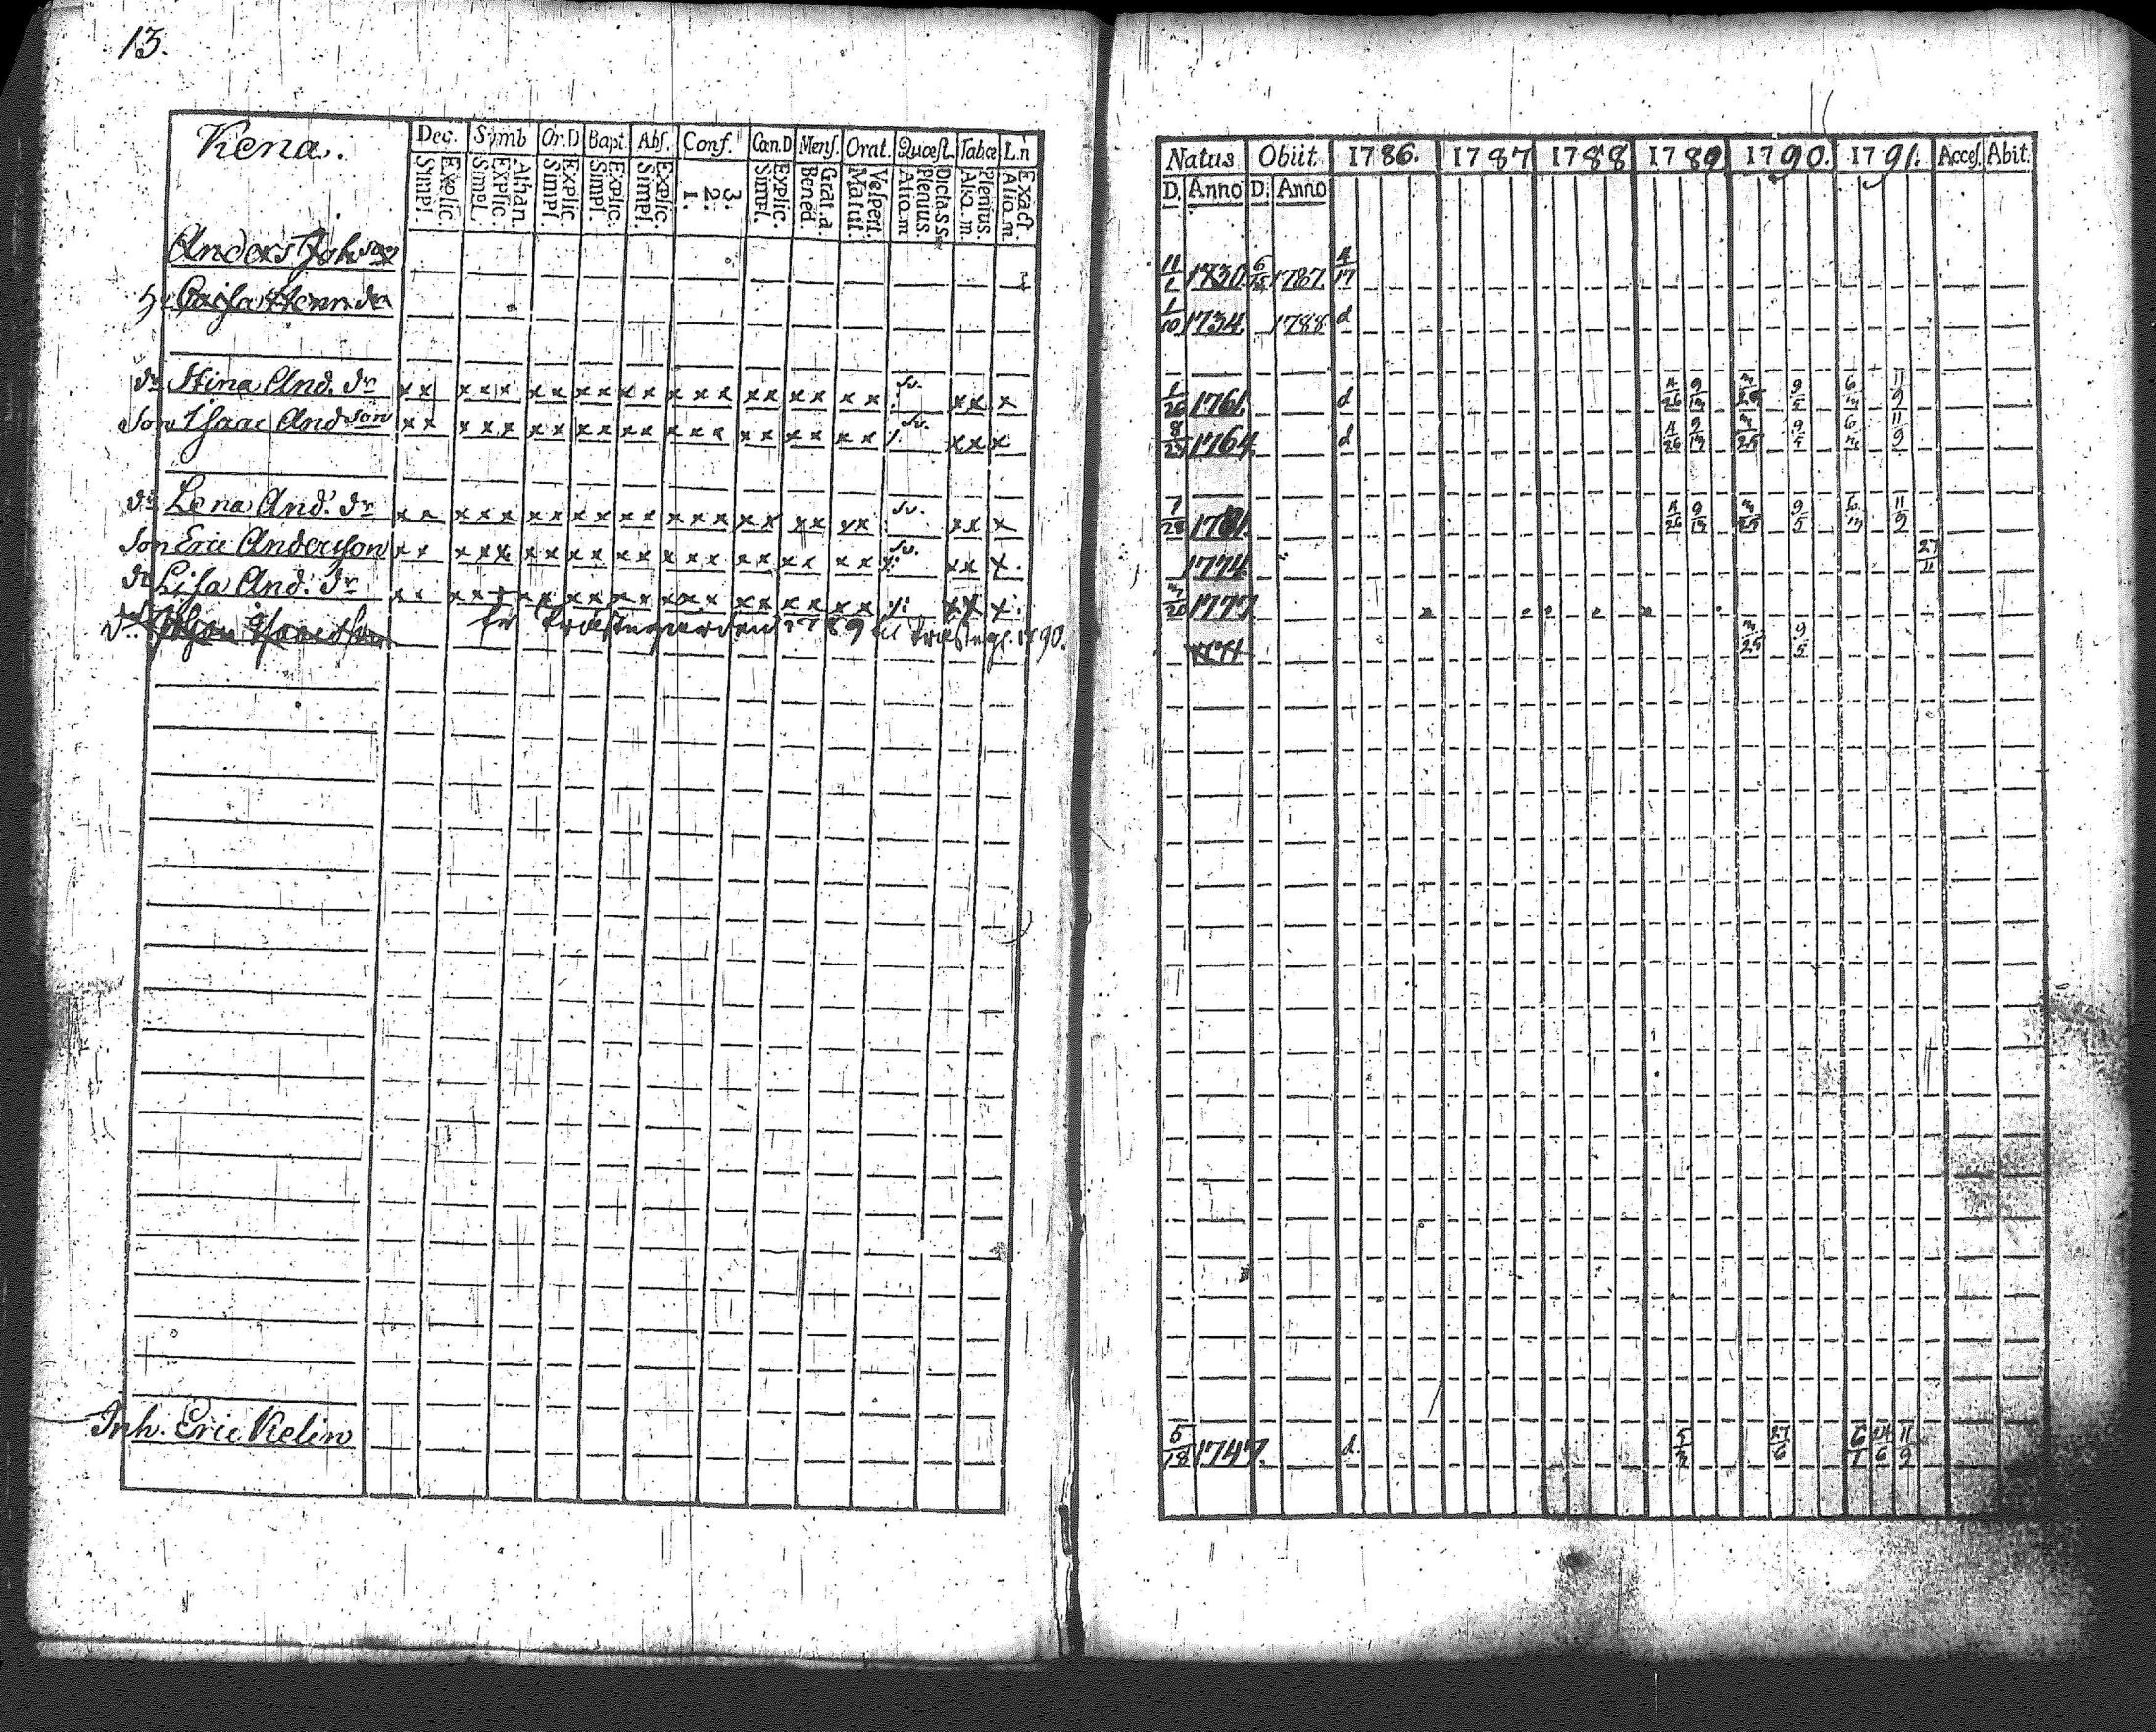 13.
Kena.
Dec. Simb Or.D Bapt. Abs. Conf. Can.D Mens. Orat. Quœst. Tabœ L.n
Explic. Simpl. Athan. Explic. Simpl. Explic. Simpl. Explic. Simpl. Explic. Simpl. 3. 2. 1. Explic. Simpl. Grat.a. Bened. Vesperi. Matut. Dicta.S.S. Plenius. Alio.m Plenius. Alio.m. Exact Alio.m.
Anders Joh son
h. Caisa Henr. dr
dr. Stina And. dr x x x x x x x x x x x x x x x x x x x x sv. x x x
Son Isaac And son x x x x x x x x x x x x x x x x x x x x sv. x x x
dr. Lena And. dr x x x x x x x x x x x x x x x x x x x x sv. x x x
Son Eric Anderson x x x x x x x x x x x x x x x x x x x x sv. x x x
dr Lisa And. dr x x x x x x x x x x x x x x x x x x x x x x x
1789 1790.
Inh. Eric Kelin
Natus Obiit. 1786. 1787 1788 1789 1790. 1791. Acces. Abit.
D. Anno D. Anno
11/2 1730. 1787. 4/17
1/10 1734 1788 d
1/26 1761. d 4/26 9/13 9/5 6/13 11/9
8/23 1764 d 4/26 9/13 3/25 9/5 11/9
7/28 4/26 9/13 3/25 9/5 6/13 11/9
1774 27/11
3/20 1777
3/25 9/5
5/18 1747. d. 27/6 11/9